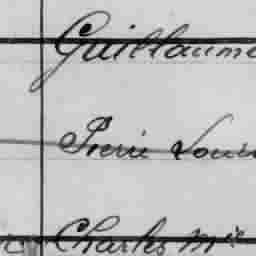 Guillaume
Pierre Louis
Charles Mie